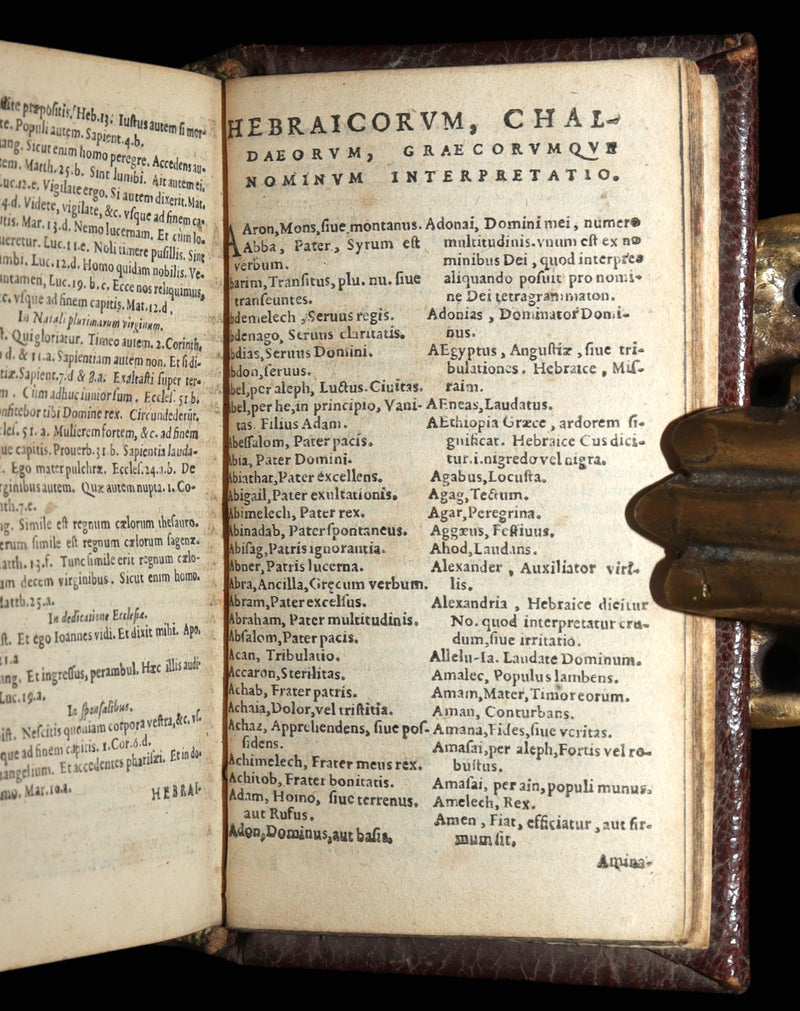 præpositis. Heb.13. Iustus autem si mor-
te. Populi autem. Sapient.4.b.
ang. Sicut enim homo peregre. Accedens au-
tem. Matth.25.b. Sint lumbi. Ait autem ei,
Luc.12.e. Vigilate ergo. Si autem dixerit. Mat.
4.d. Videte, vigilate, &c. vsque ad finem ca-
itis. Mar.13.d. Nemo lucernam. Et cùm lo-
ueretur. Luc.11.e. Noli timere pusillis. Sint
umbi. Luc.12.d. Homo quidam nobilis. Ve-
untamen, Luc.19.b.c. Ecce nos reliquimus,
c. vsque ad finem capitis. Mat.12.d.
In Natali plurimarum virginum.
t. Qui gloriatur. Timeo autem. 2. Corinth.
d. & 11.a. Sapientiam autem non. Et si di-
tiæ. Sapient.7.d & 8.a. Exaltasti super ter-
m. Cùm adhuc iunior sum. Eccles. 51.b.
onfitebor tibi Domine rex. Circundederūt.
cles. 51.a. Mulierem fortem, &c. ad finem
que capitis. Prouerb.31.b. Sapientia lauda-
. Ego mater pulchræ. Eccles.24.a.b. De
rginibus autem. Quæ autem nupta. 1. Co-
nth.7.e.
ng. Simile est regnum cælorum thesauro.
erum simile est regnum cælorum sagenæ.
atth.13.f. Tunc simile erit regnum cælo-
um decem virginibus. Sicut enim homo.
Matth.25.a.
In dedicatione Ecclesiæ.
st. Et ego Ioannes vidi. Et dixit mihi. Apo.
21.a
ang. Et ingressus, perambul. Hæc illis audi-
Luc.19.a.
In sponsalibus.
ist. Nescitis quoniam corpora vestra, &c. vs-
que ad finem capitis. 1. Cor.6.d.
uangelium. Et accedentes pharisæi. Et in do-
mo. Mar.10.a.
HEBRAI-
HEBRAICORVM, CHAL-
DAEORVM, GRAECORVMQVE
NOMINVM INTERPRETATIO.
AAron, Mons, siue montanus.
Abba, Pater, Syrum est
verbum.
barim, Transitus, plu. nu. siue
transeuntes.
bdemelech, Seruus regis.
bdenago, Seruus claritatis.
bdias, Seruus Domini.
bdon, seruus.
bel, per aleph, Luctus. Ciuitas.
bel, per he, in principio, Vani-
tas. Filius Adami.
Abessalom, Pater pacis.
Abia, Pater Domini.
Abiathar, Pater excellens.
Abigail, Pater exultationis.
Abimelech, Pater rex.
Abinadab, Pater spontaneus.
Abisag, Patris ignorantia.
Abner, Patris lucerna.
Abra, Ancilla, Gręcum verbum.
Abram, Pater excelsus.
Abraham, Pater multitudinis.
Absalom, Pater pacis.
Acan, Tribulatio.
Accaron, Sterilitas.
Achab, Frater patris.
Achaia, Dolor, vel tristitia.
Achaz, Apprehendens, siue pos-
sidens.
Achimelech, Frater meus rex.
Achitob, Frater bonitatis.
Adam, Homo, siue terrenus.
aut Rufus.
Adon, Dominus, aut basis.
Adonai, Domini mei, numero
multitudinis. vnum est ex no
minibus Dei, quod interpres
aliquando posuit pro nomi-
ne Dei tetragrammaton.
Adonias, Dominator Domi-
nus.
AEgyptus, Angustiæ, siue tri-
bulationes. Hebraice, Mis-
raim.
AEneas, Laudatus.
AEthiopia Græce, ardorem si-
gnificat. Hebraice Cus dici-
tur. i. nigredo vel nigra.
Agabus, Locusta.
Agag, Tectum.
Agar, Peregrina.
Aggæus, Festiuus.
Ahod, Laudans.
Alexander, Auxiliator viri-
lis.
Alexandria, Hebraice dicitur
No. quod interpretatur cru-
dum, siue irritatio.
Allelu-Ia. Laudate Dominum.
Amalec, Populus lambens.
Amam, Mater, Timor eorum.
Aman, Conturbans.
Amana, Fides, siue veritas.
Amasai, per aleph, Fortis vel ro-
bustus.
Amasai, per ain, populi munus.
Amelech, Rex.
Amen, Fiat, efficiatur, aut fir-
mum sit.
Amina-